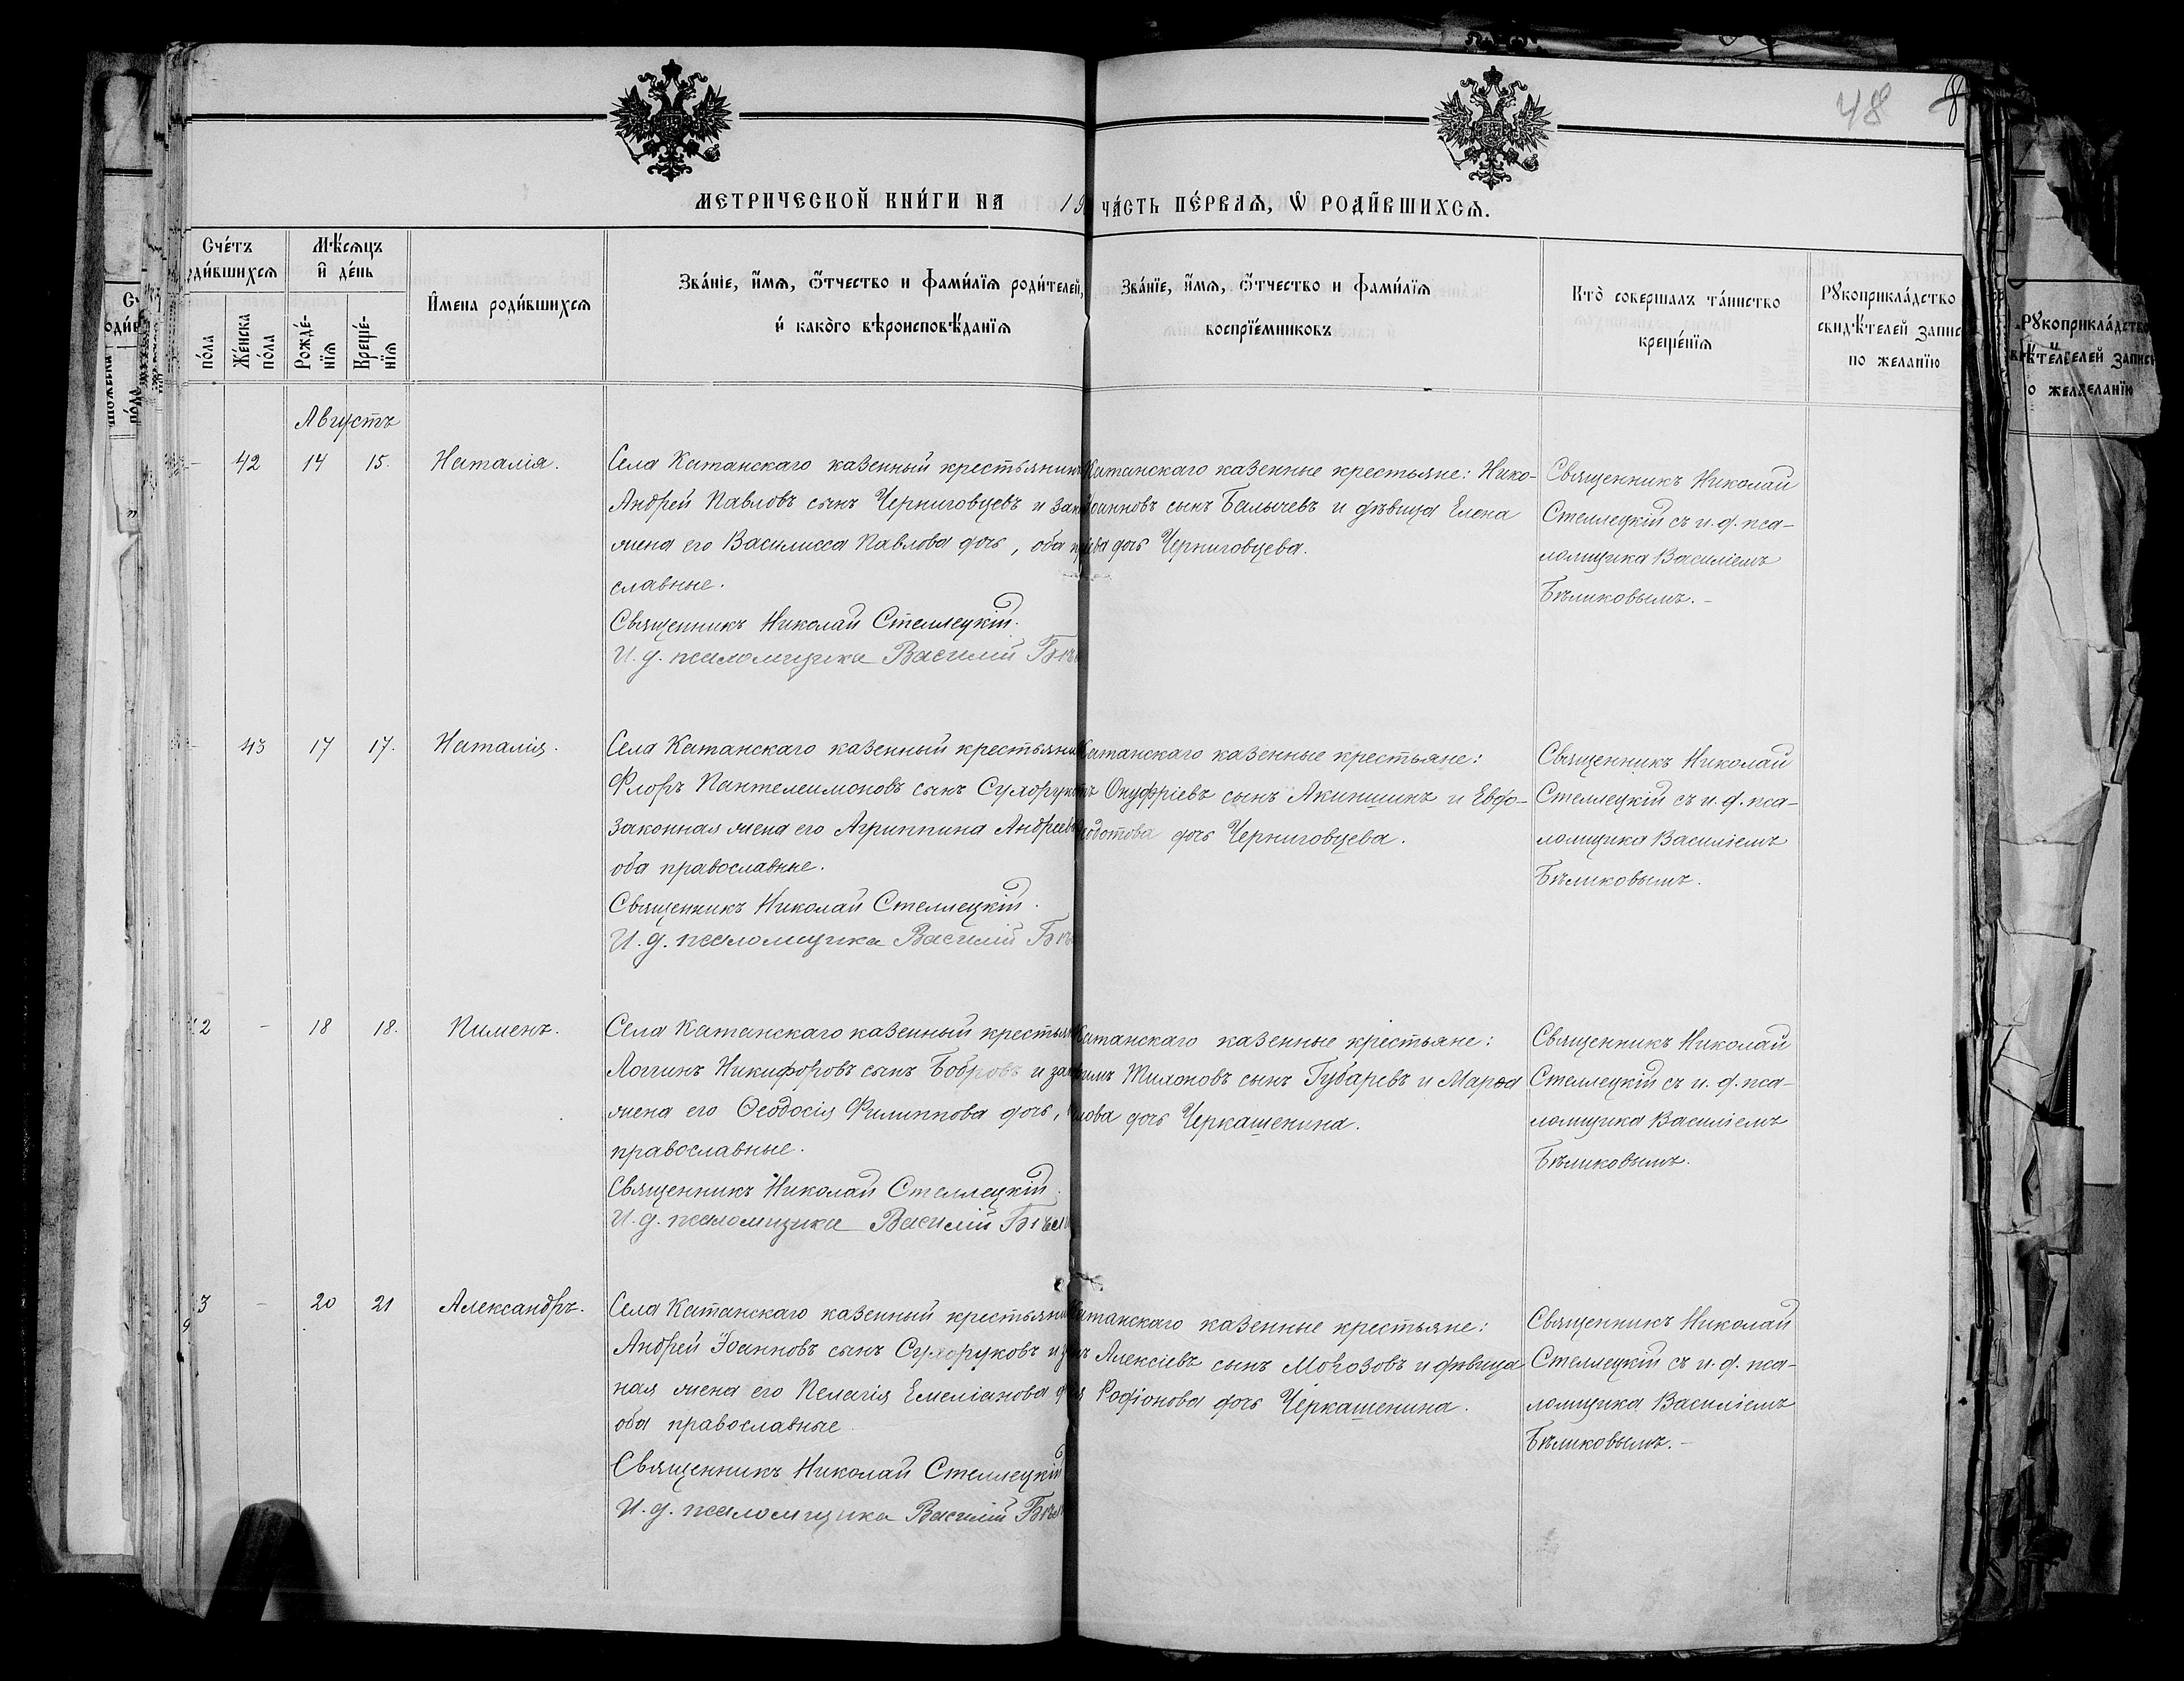 48
МЕТРИЧЕСКОЙ КНИ́ГИ НА 19
ЧА́СТЬ ПЕ́РВАѦ, Ѡ҆ РОДИ́ВШИХСѦ.
Сче́тъ
ди́вшихсѧ
Мѣ́сѧцъ
и҆ де́нь
по́ла
Же́нска по́ла
Рожде́нїѧ
Креще́нїѧ
И҆мена роди́вшихсѧ
Зва́нїе, и҆́мѧ, ѻ҆́тчество и фами́лїѧ роди́телей,
и҆ како́гѡ вѣроисповѣ́данїѧ
Зва́нїе, и҆́мѧ, ѻ҆́тчество и фами́лїѧ
воспрїе́мниковъ
Кто̀ соверша́лъ та́инство
креще́нїѧ
Рꙋкоприкла́дство
свидѣ́телей запис
по жела́нїю
Августъ
42 14 15. Наталія.
Села Катанскаго казенный крестьянинъ
Андрей Павловъ сынъ Черниговцевъ и зак
жена его Василисса Павлова дочь, оба п
славные.
Священникъ Николай Стеллецкій.
И. д. псаломщика Василій Бѣ
Катанскаго казенные крестьяне: Нико-
Іоанновъ сынъ Балычевъ и дѣвица Елена
ва дочь Черниговцева.
Священникъ Николай
Стеллецкій съ и. д. пса-
ломщика Василіемъ
Бѣликовымъ. -
43 17 17. Наталія.
Села Катанскаго казенный крестьяни
Флоръ Пантелеимоновъ сынъ Сухоруко
законная жена его Агриппина Андреев
оба православные.
Священникъ Николай Стеллецкій.
И. д. псаломщика Василій Бѣ
Катанскаго казенные крестьяне:
Онуфріевъ сынъ Акиншинъ и Евдо-
дотова дочь Черниговцева.
Священникъ Николай
Стеллецкій съ и. д. пса-
ломщика Василіемъ
Бѣликовымъ.
2 - 18 18. Пименъ.
Села Катанскаго казенный крестьян
Логгинъ Никифоровъ сынъ Бобровъ и зак
жена его Ѳеодосія Филиппова дочь,
православные.
Священникъ Николай Стеллецкій.
И. д. псаломщика Василій Бѣли
Катанскаго казенные крестьяне:
имъ Тихоновъ сынъ Губаревъ и Марѳа
нова дочь Черкашенина.
Священникъ Николай
Стеллецкій съ и. д. пса-
ломщика Василіемъ
Бѣликовымъ.
3 - 20 21 Александръ.
Села Катанскаго казенный крестьяни
Андрей Іоанновъ сынъ Сухоруковъ и з
ная жена его Пелагія Емеліанова д
оба православные
Священникъ Николай Стеллецкій
И. д. псаломщика Василій Бѣл
Катанскаго казенные крестьяне:
ъ Алексіевъ сынъ Морозовъ и дѣвица
я Родіонова дочь Черкашенина.
Священникъ Николай
Стеллецкій съ и. д. пса-
ломщика Василіемъ
Бѣликовымъ. -